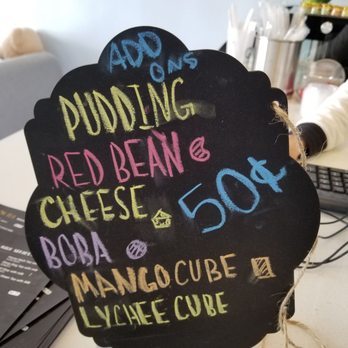 ADD
ONS
PUDDING
RED BEAN
CHEESE
50¢
BOBA
MANGO CUBE
LYCHEE CUBE